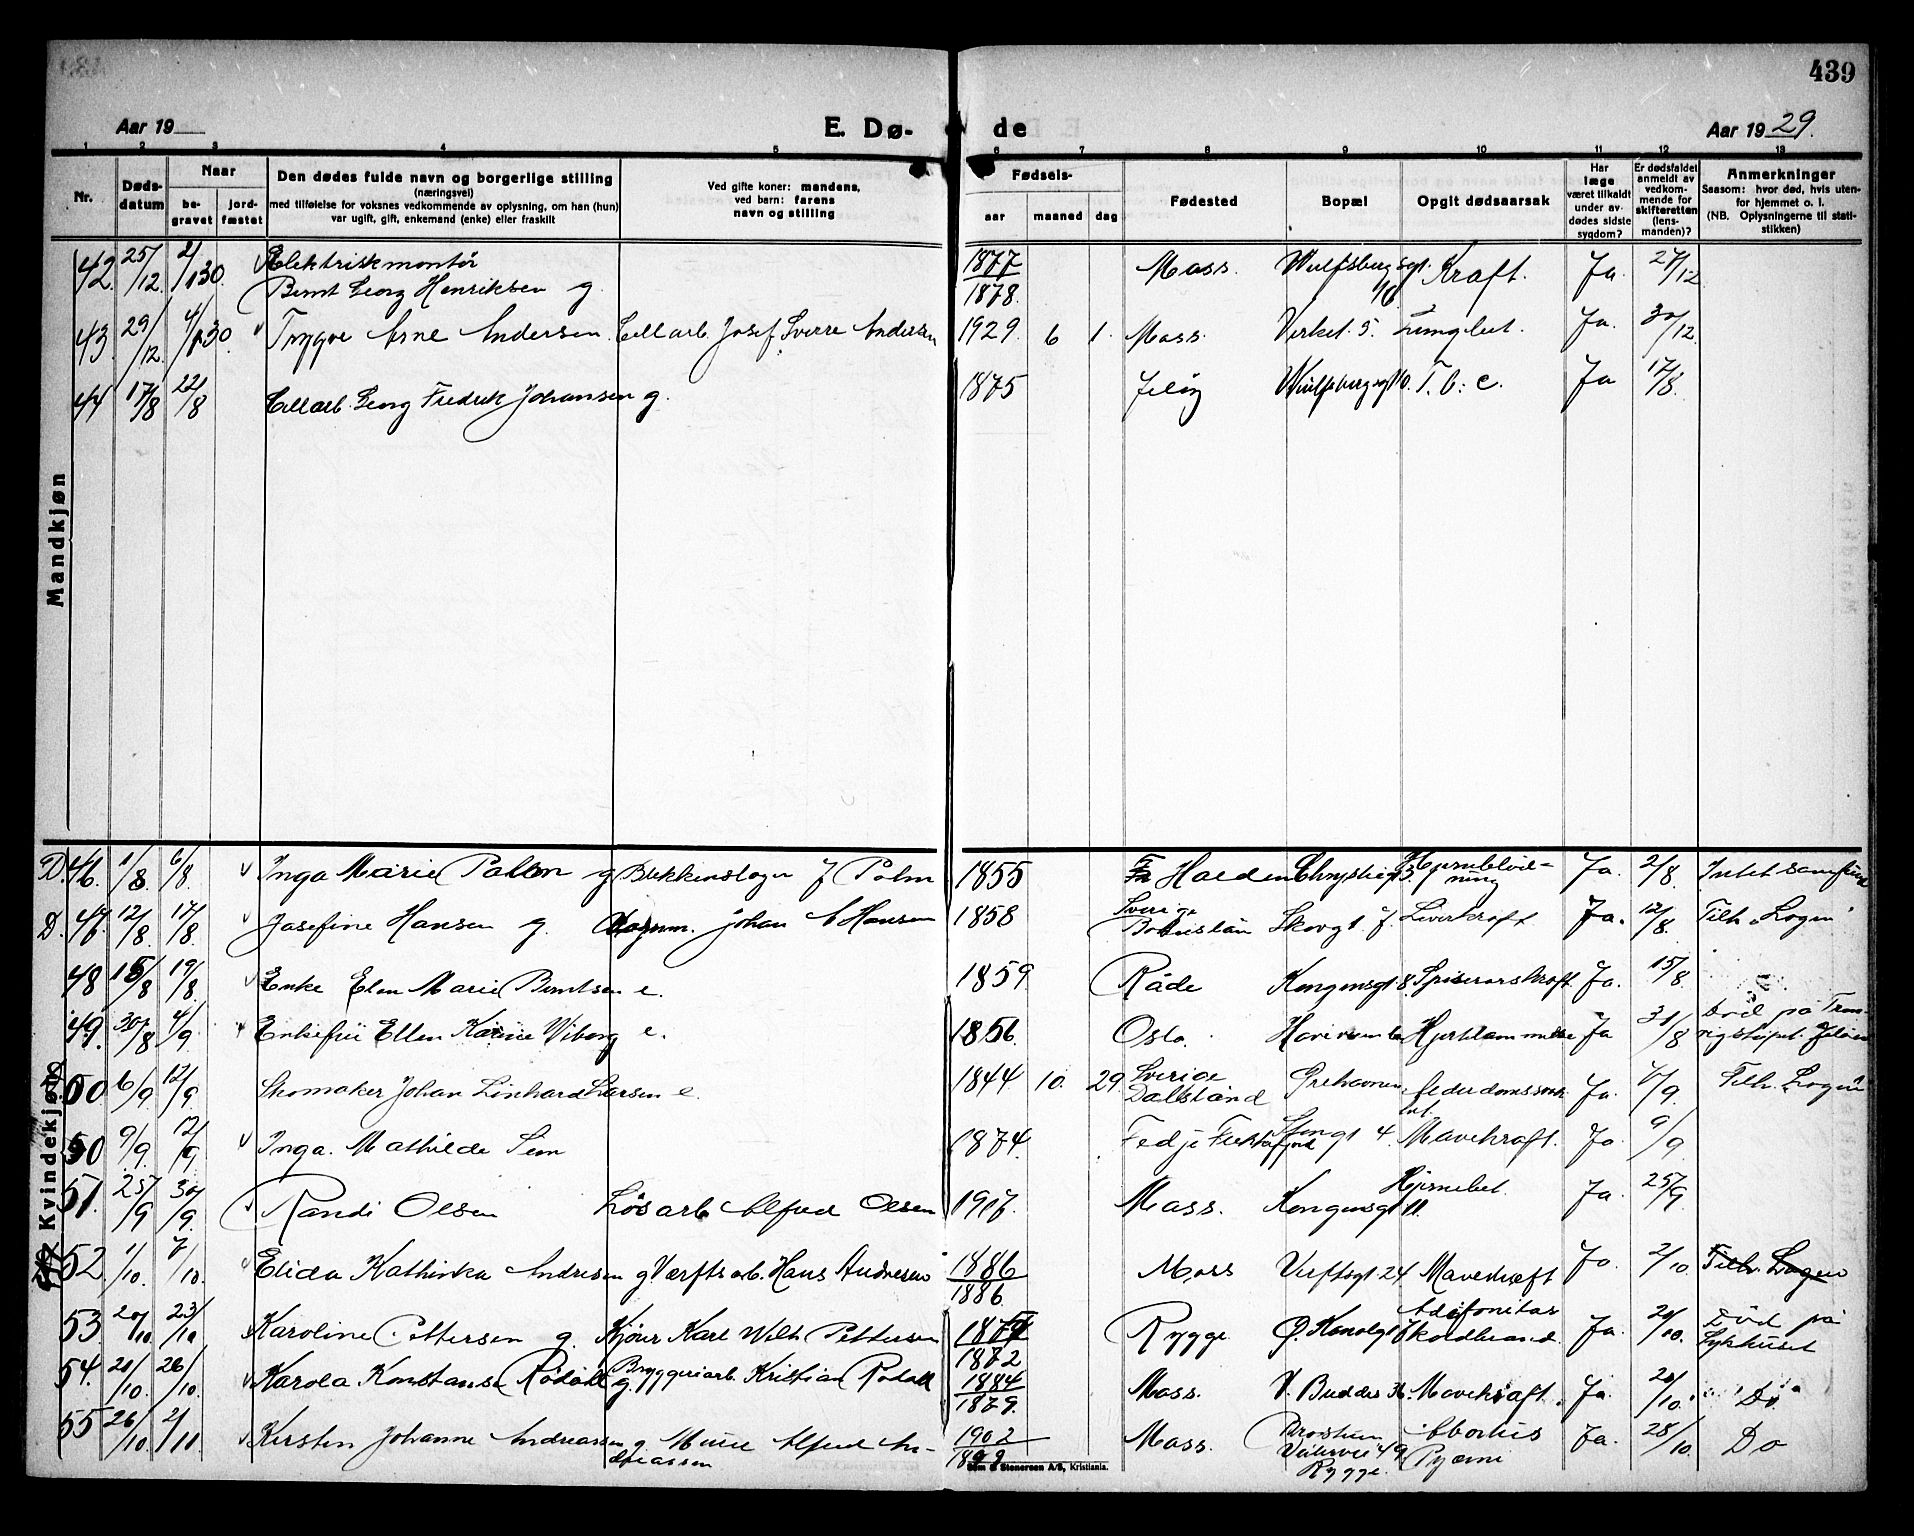 439
Aar 19
E. Dø-
de
Aar 19 29.
1 2 3 4 5 6 7 8 9 10 11 12 13
Nr.
Døds-
datum
Naar
be-
gravet
jord-
fæstet
Den dødes fulde navn og borgerlige stilling
(næringsvei)
med tilføielse for voksnes vedkommende av oplysning, om han (hun)
var ugift, gift, enkemand (enke) eller fraskilt
Ved gifte koner: mandens,
ved barn: farens
navn og stilling
Fødsels-
aar
maaned
dag
Fødested
Bopæl
Opgit dødsaarsak
Har
læge
været tilkaldt
under av-
dødes sidste
sygdom?
Er dødsfaldet
anmeldt av
vedkom-
mende for
skifteretten
(lens-
manden)?
Anmerkninger
Saasom: hvor død, hvis uten-
for hjemmet o. l.
(NB. Oplysningerne til stati-
stikken)
Mandkjøn
42. 25/12. 2/1 30 Elektriskmontør
Bernt Georg Henriksen g. 1877
1878. Moss. Wulfsbergsgt. 16 Kraft. Ja. 27/12
43. 29/12. 4/1 30. Trygve Arne Andersen. Cellarb. Josef Sverre Andersen 1929 6 1. Moss. Verket 5. Lungebet. Ja. 30/12
44 17/8 22/8 Cellarb. Georg Fredrik Johansen g. 1875 Jeløy Wulfsbergsgt 10. T. b. c. Ja 17/8.
Kvindekjøn
D. 46. 1/8 6/8. Inga Marie Palm g Blikkenslager J Palm 1855 Halden Chrystiesgt 3. Hjerneblød-
ning Ja. 2/8.
D. 47. 12/8. 17/8. Josefine Hansen g. Johan A Hansen 1858 Sverige
Bohuslän Skovgt 7. Leverkræft Ja. 12/8. Tilh. "Logen"
48 15/8 19/8. Enke Elen Marie Berntsen e. 1859. Råde Kongensgt 8. Spiserørskræft Ja. 15/8
49. 30/8 4/9 Enkefru Ellen Karine Viborg e. 1856. Oslo. Hjertelammelse Ja 31/8 Død på
50 6/9. 12/9. Skomaker Johan Linhard Larsen e. 1844 10. 29. Sverige
Dalsland Ja. 7/9. Tilh. Logen
50 9/9. 12/9 Inga. Mathilde Sem 1874. Fedje Stengt 4. Mavekræft. Ja 9/9
51. 25/9 30/9. Randi Olsen Løsarb Alfred Olsen 1917. Moss. Kongensgt 11. Hjernebet. Ja. 25/9
52. 1/10. 7/10. Elida Kathinka Andresen g Værftsarb. Hans Andresen 1886
1886. Moss Verftsgt 24 Mavekræft Ja. 2/10. Tilh. Logen
53. 20/10. 23/10 Karoline Pettersen g. Kjører Karl Wilh Pettersen
1872 Rygge Ø. Kanalgt 7
Koldbrand. Ja. 21/10. Død på
Sykhuset
54. 21/10. 26/10. Karola Konstanse Rødahl g. Bryggeriarb. Kristian Rødahl 1884
1879. Moss. V. Buddes 36. Mavekræft. Ja. 21/10. " Do "
55 26/10 2/11 Kirsten Johanne Andreassen g. Alfred An-
dreassen 1902
Moss.
Rygge. Abortus
Ja. 28/10 Do
Sem & Stenersen A/S, Kristiania.